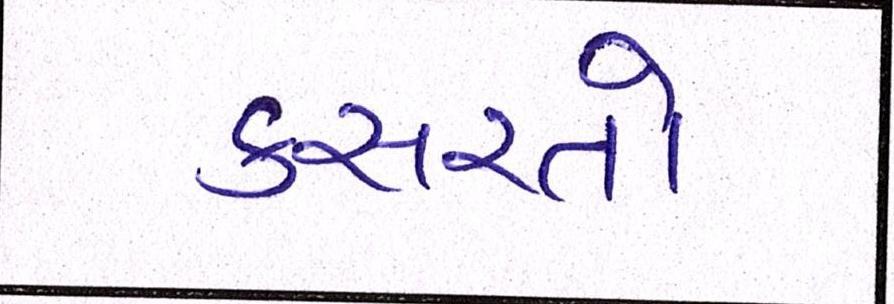 કસરતો